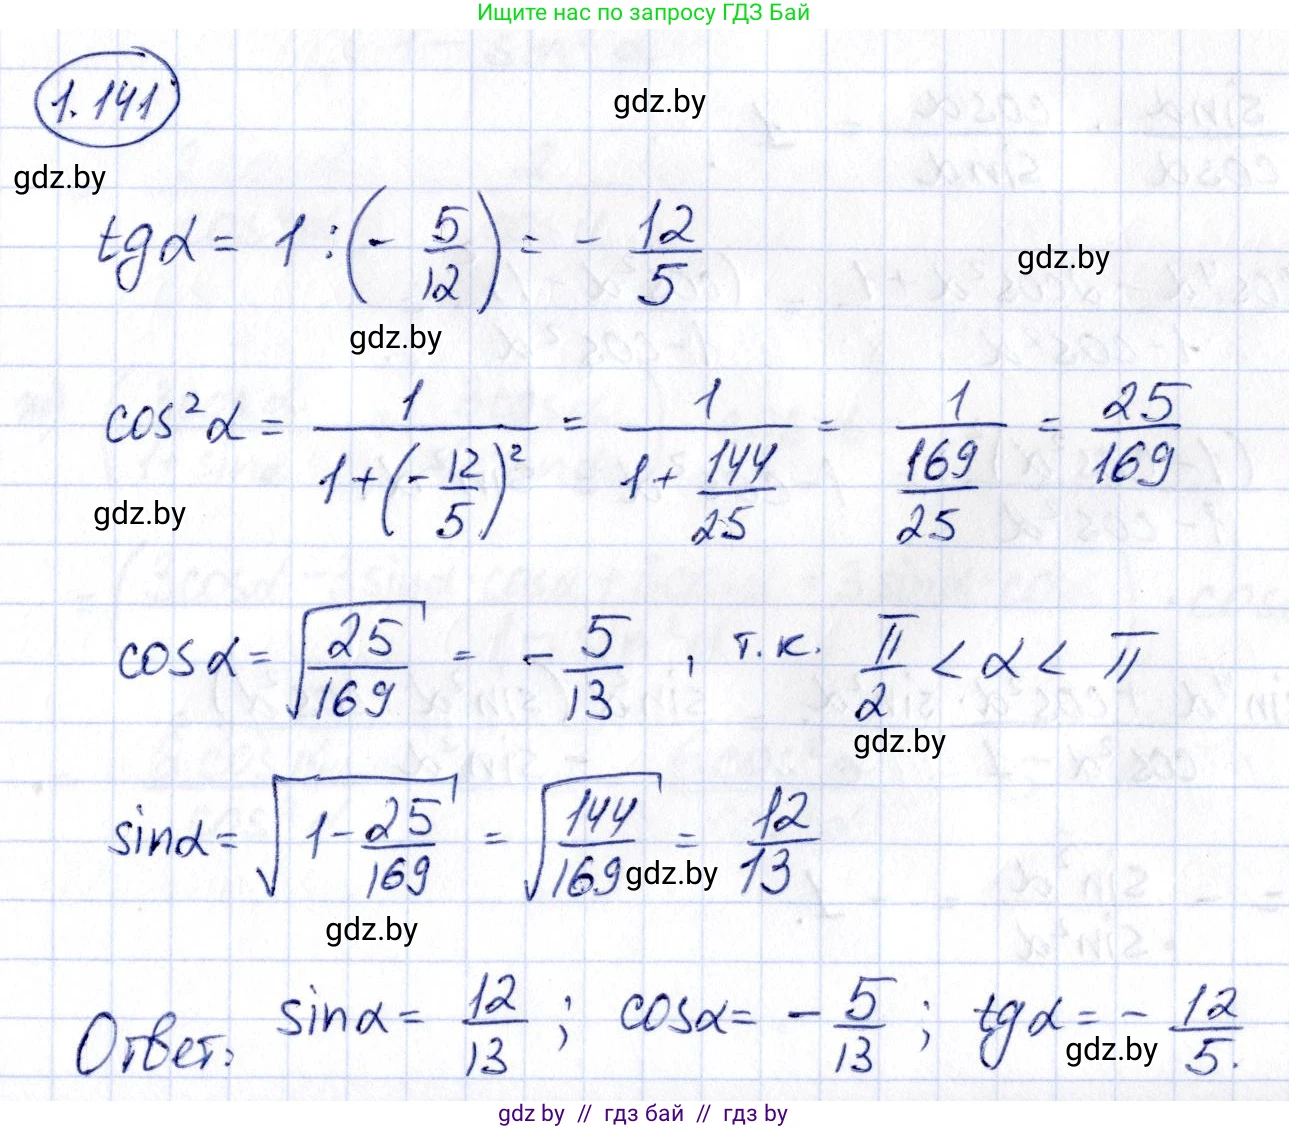 Ищите нас по запросу ГДЗ Бай
1.141
gdz.by
gdz.by
tgα = 1 : (- 5/12) = - 12/5
gdz.by
gdz.by
cos²α = 1/(1+(-12/5)²) = 1/(1+144/25) = 1/(169/25) = 25/169
gdz.by
cosα = √(25/169) = - 5/13 , т.к. π/2 < α < π
gdz.by
sinα = √(1-25/169) = √(144/169) = 12/13
gdz.by
gdz.by
Ответ: sinα = 12/13 ; cosα = - 5/13 ; tgα = - 12/5.
gdz.by
gdz by // гдз бай // гдз by